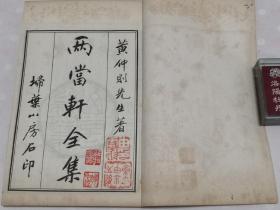 黃仲則先生著
兩當軒全集
埽葉山房石印
洛陽牡丹